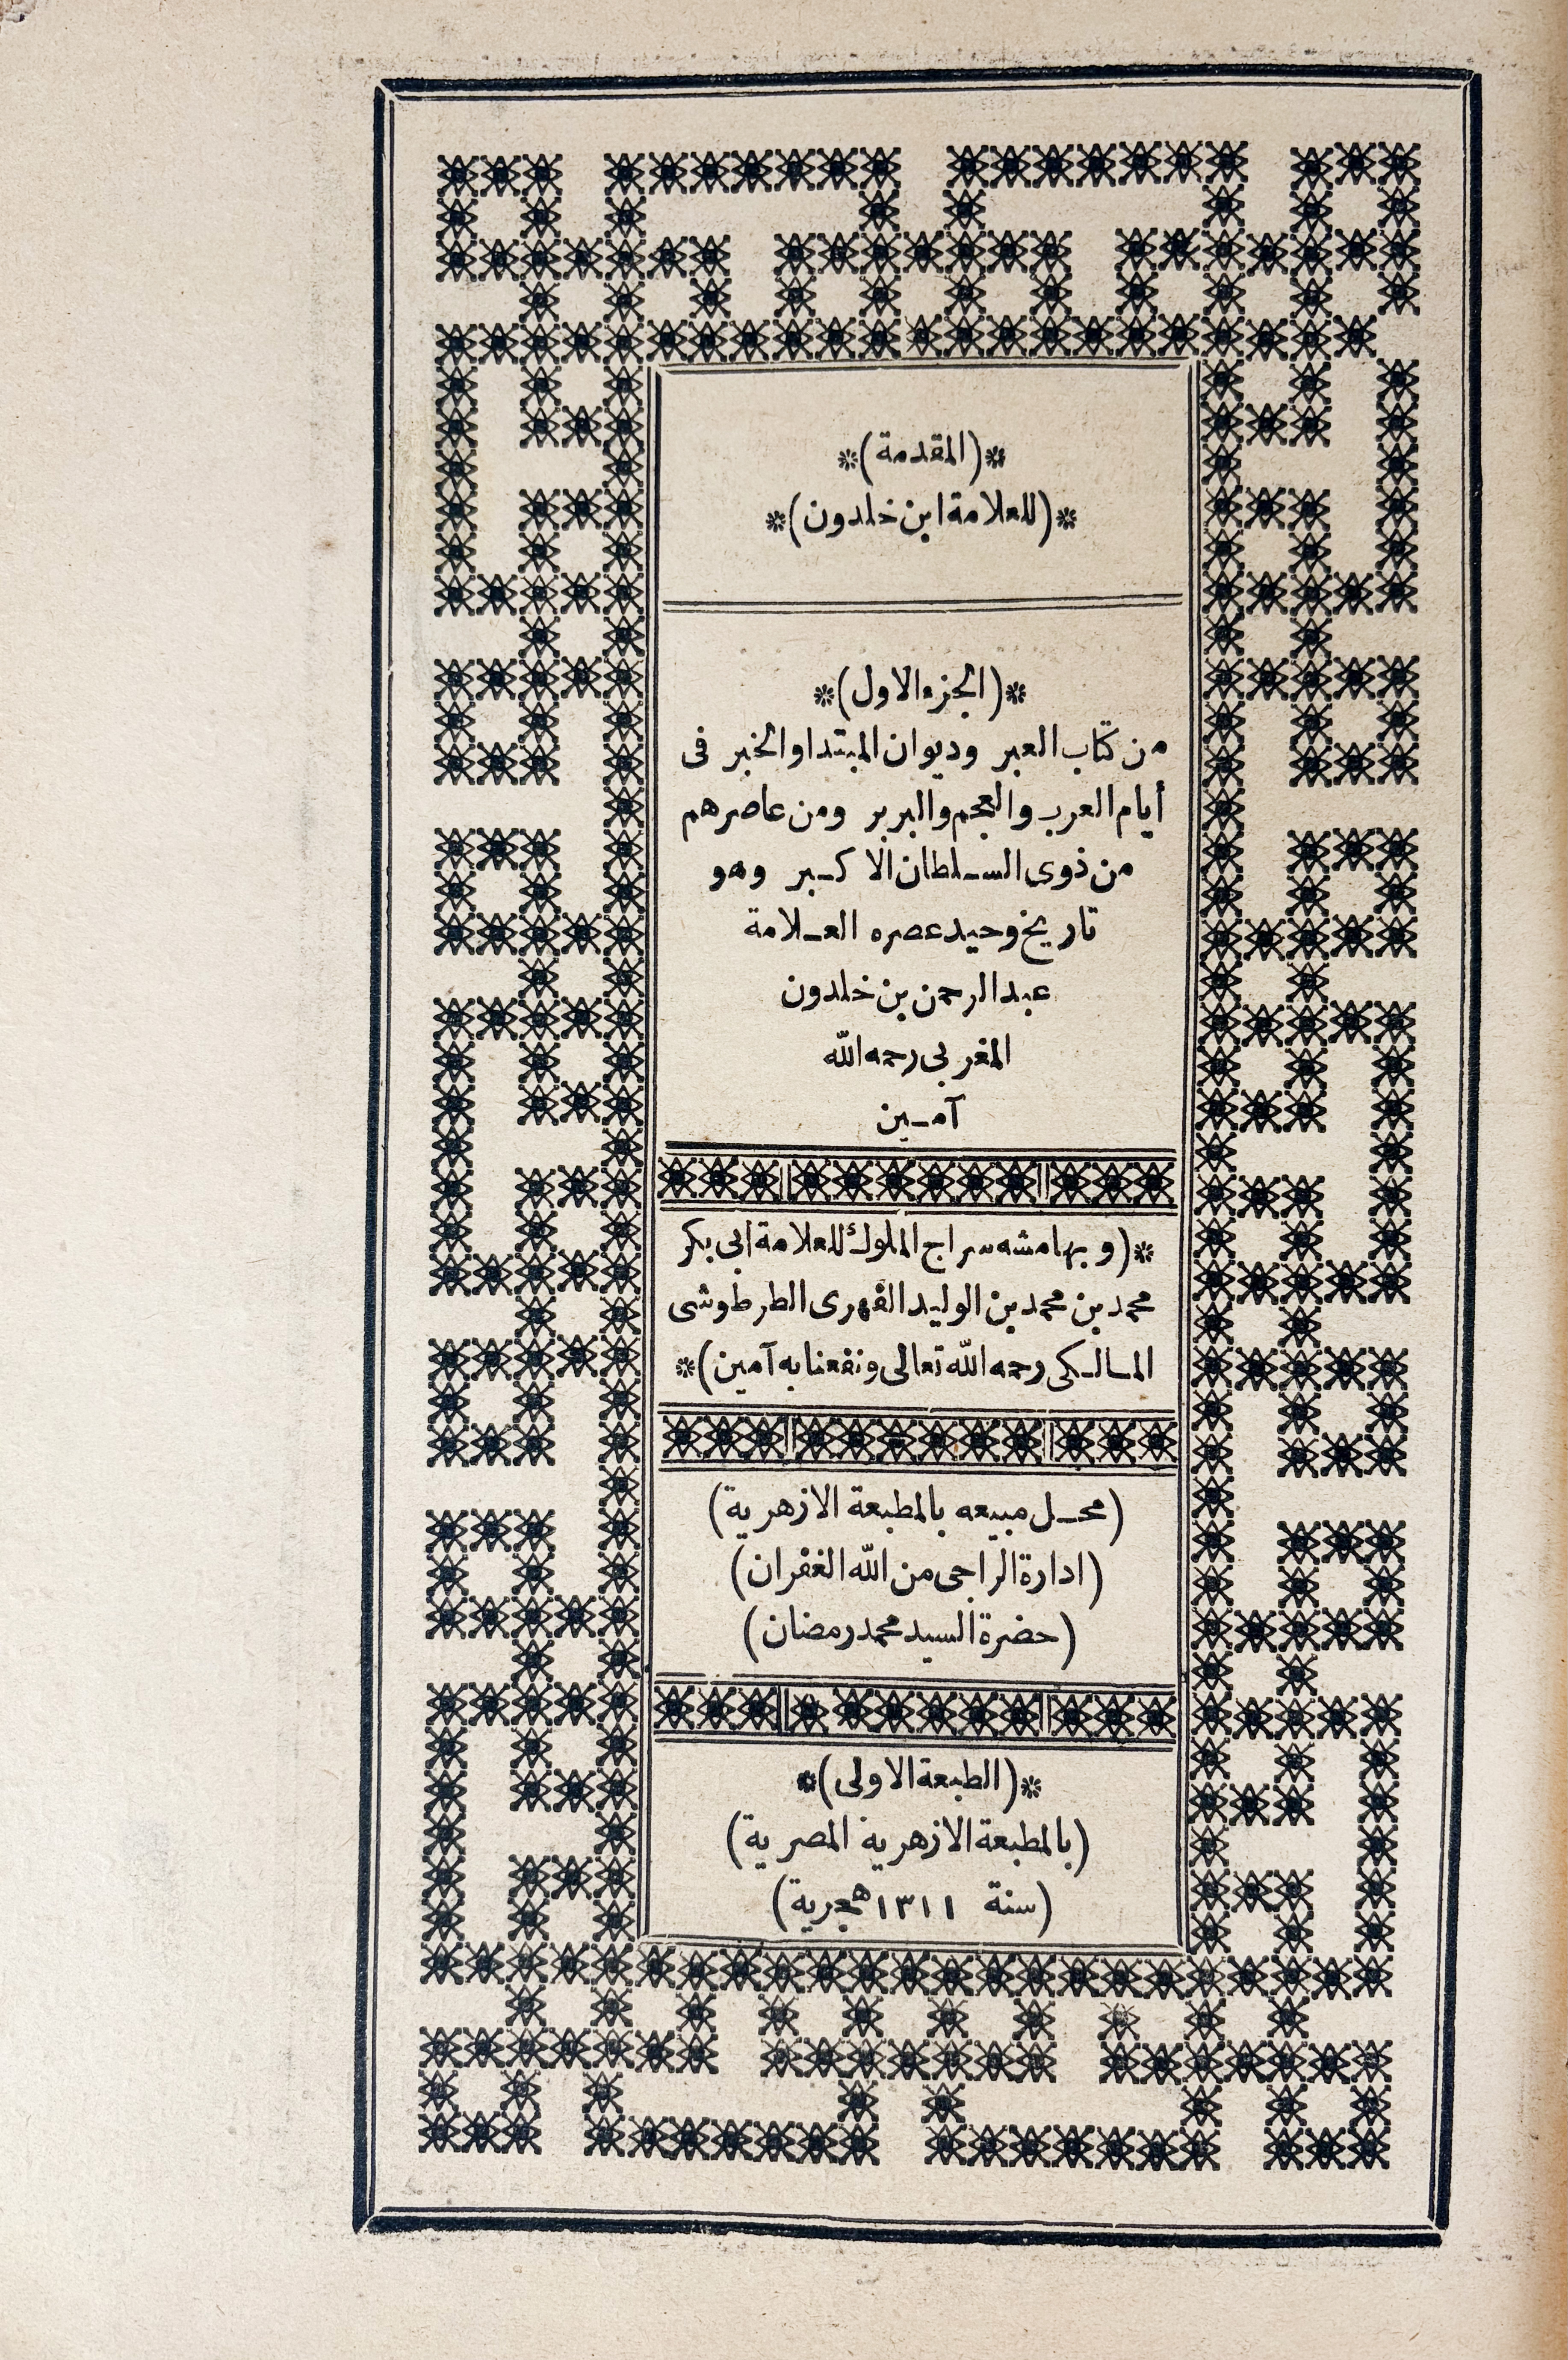 *(المقدمة)*
*(للعلامة ابن خلدون)*
*(الجزء الاول)*
من كتاب العبر وديوان المبتدا والخبر فى
أيام العرب والعجم والبربر ومن عاصرهم
من ذوى السـلطان الاكـبر وهو
تاريخ وحيد عصره العـلامة
عبد الرحمن بن خلدون
المغربى رحمه الله
آمـين
*(وبهامشه سراج الملوك للعلامة أبى بكر
محمد بن محمد بن الوليد الفهرى الطرطوشى
المـالـكى رحمه الله تعالى ونفعنا به آمين)*
(محـل مبيعه بالمطبعة الازهرية)
(ادارة الراجى من الله الغفران)
(حضرة السيد محمد رمضان)
*(الطبعة الاولى)*
(بالمطبعة الازهرية المصرية)
(سنة ١٣١١ هجرية)